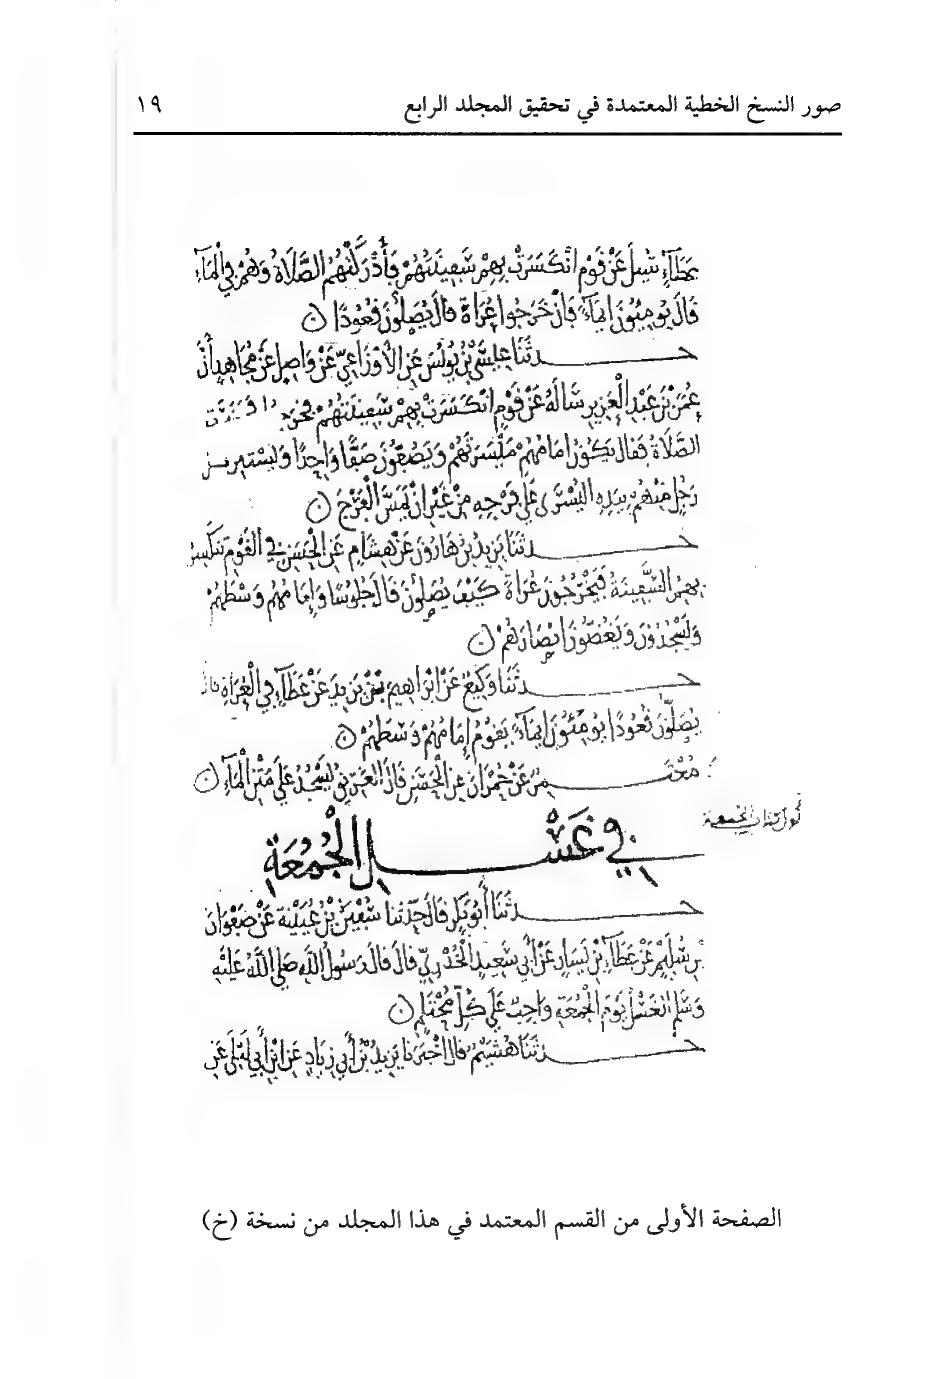 صور النسخ الخطية المعتمدة في تحقيق المجلد الرابع ١٩
عطاء سئل عن قوم انكسرت بهم سفينتهم فأدركتهم الصلاة وهم في الماء
قال يومئون إيماء فإن خرجوا عراة قال يصلون قعودا
حدثنا عيسى بن يونس عن الأوزاعي عن واصل عن مجاهد أن
عمر بن عبد العزيز سأله عن قوم انكسرت بهم سفينتهم
الصلاة فقال يكون إمامهم ميسرتهم ويصفون صفا واحدا وليستتر كل
رجل منهم بيده اليسرى على فرجه من غير أن يمس الفرج
حدثنا يزيد بن هارون عن هشام عن الحسن في القوم تنكسر
بهم السفينة فيخرجون عراة كيف يصلون قال جلوسا وإمامهم وسطهم
ويسجدون ويغضون أبصارهم
حدثنا وكيع عن إبراهيم بن يزيد عن عطاء في العراة قال
يصلون قعودا يومئون إيماء يقوم إمامهم وسطهم
معتمر عن حمران عن الحسن قال العريق يسجد على متن الماء
أول كتاب الجمعة
في غسل الجمعة
حدثنا أبو بكر قال حدثنا سفين بن عيينة عن صفوان
بن سليم عن عطاء بن يسار عن أبي سعيد الخدري قال قال رسول الله صلى الله عليه
وسلم الغسل يوم الجمعة واجب على كل محتلم
حدثنا هشيم قال أخبرنا يزيد بن أبي زياد عن ابن أبي ليلى عن
الصفحة الأولى من القسم المعتمد في هذا المجلد من نسخة (خ)